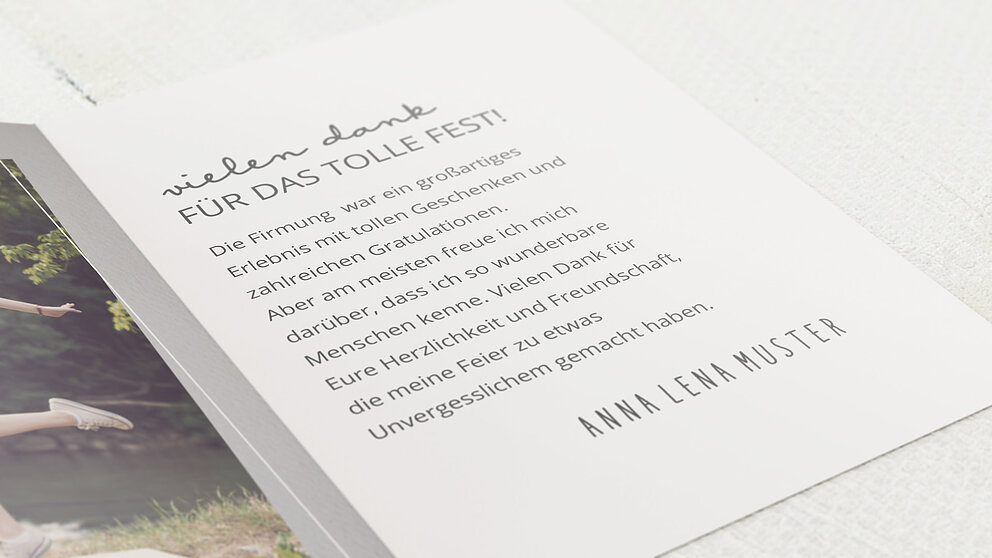 vielen dank
FÜR DAS TOLLE FEST!
Die Firmung war ein großartiges
Erlebnis mit tollen Geschenken und
zahlreichen Gratulationen.
Aber am meisten freue ich mich
darüber, dass ich so wunderbare
Menschen kenne. Vielen Dank für
Eure Herzlichkeit und Freundschaft,
die meine Feier zu etwas
Unvergesslichem gemacht haben.
ANNA LENA MUSTER